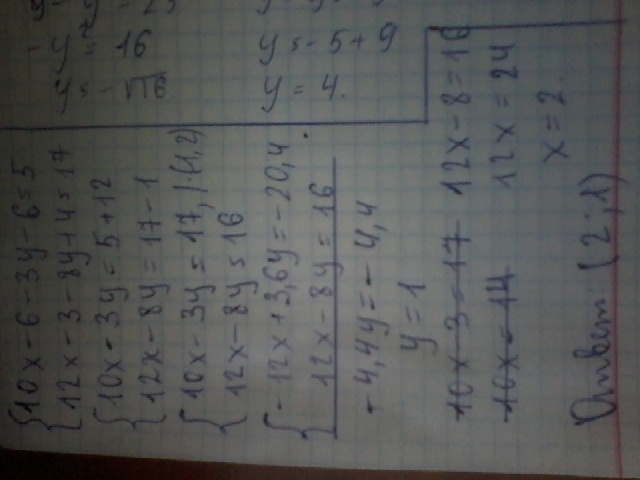 y = 16
y = -√16
y = -5 + 9
y = 4.
{ 10x - 6 - 3y - 6 = 5
{ 12x - 3 - 8y + 4 = 17
{ 10x - 3y = 5 + 12
{ 12x - 8y = 17 - 1
{ 10x - 3y = 17, | · (1,2)
{ 12x - 8y = 16
{ -12x + 3,6y = -20,4
{ 12x - 8y = 16
-4,4y = -4,4
y = 1
10x - 3 = 17
10x = 14
12x - 8 = 16
12x = 24
x = 2.
Ответ: (2; 1)